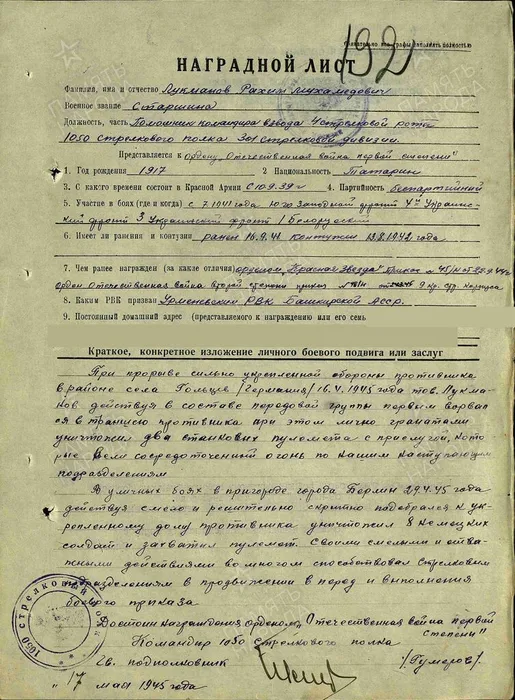 Обязательно все графы заполнять полностью
1920
НАГРАДНОЙ ЛИСТ
Фамилия, имя и отчество Лукманов Рахим Мухамедович
Военное звание Старшина
Должность, часть Помошник командира взвода 4 стрелковой роты
1050 стрелкового полка 301 стрелковой дивизии.
Представляется к ордену „Отечественная война первой степени"
1. Год рождения 1917 2 Национальность Татарин
3. С какого времени состоит в Красной Армии С 10 9.39 г 4. Партийность беспартийный
5. Участие в боях (где и когда) с 7.1941 года Юго Западной фронт 4й Украин-
ский фронт 3 Украинский фронт 1 Белорусский
6. Имеет ли ранения и контузии ранен 16.9.41 контужен 13.8.1942 года
7. Чем ранее награжден (за какие отличия) орденом „Красная звезда" приказ
орден Отечественная война второй степени приказ 9 Кр. стр. корпуса
8. Каким РВК призван РВК Башкирской Асср.
9. Постоянный домашний адрес (представляемого к награждению или его семь
Краткое, конкретное изложение личного боевого подвига или заслуг
При прорыве сильно укрепленной обороны противника
в районе села Гольцев /Германия/ 16.4.1945 года тов. Лукма-
нов действуя в составе передовой группы первым ворвал-
ся в траншею противника при этом лично гранатами
уничтожил два станковых пулемета с прислугой, кото-
рые вели сосредоточенный огонь по нашим наступающим
подразделениям
В уличных боях в пригороде города Берлин 29.4.45 года
действуя смело и решительно скрытно подобрался к ук-
репленному дому противника уничтожил 8 немецких
солдат и захватил пулемет. Своими смелыми и отва-
жными действиями во многом способствовал стрелковым
подразделениям в продвижении в перед и выполнения
боевого приказа
Достоин награждения орденом „Отечественная война первой
степени"
Командир 1050 стрелкового полка
Гв. подполковник /Гумеров/
„17" мая 1945 года
1050 СТРЕЛКОВЫЙ